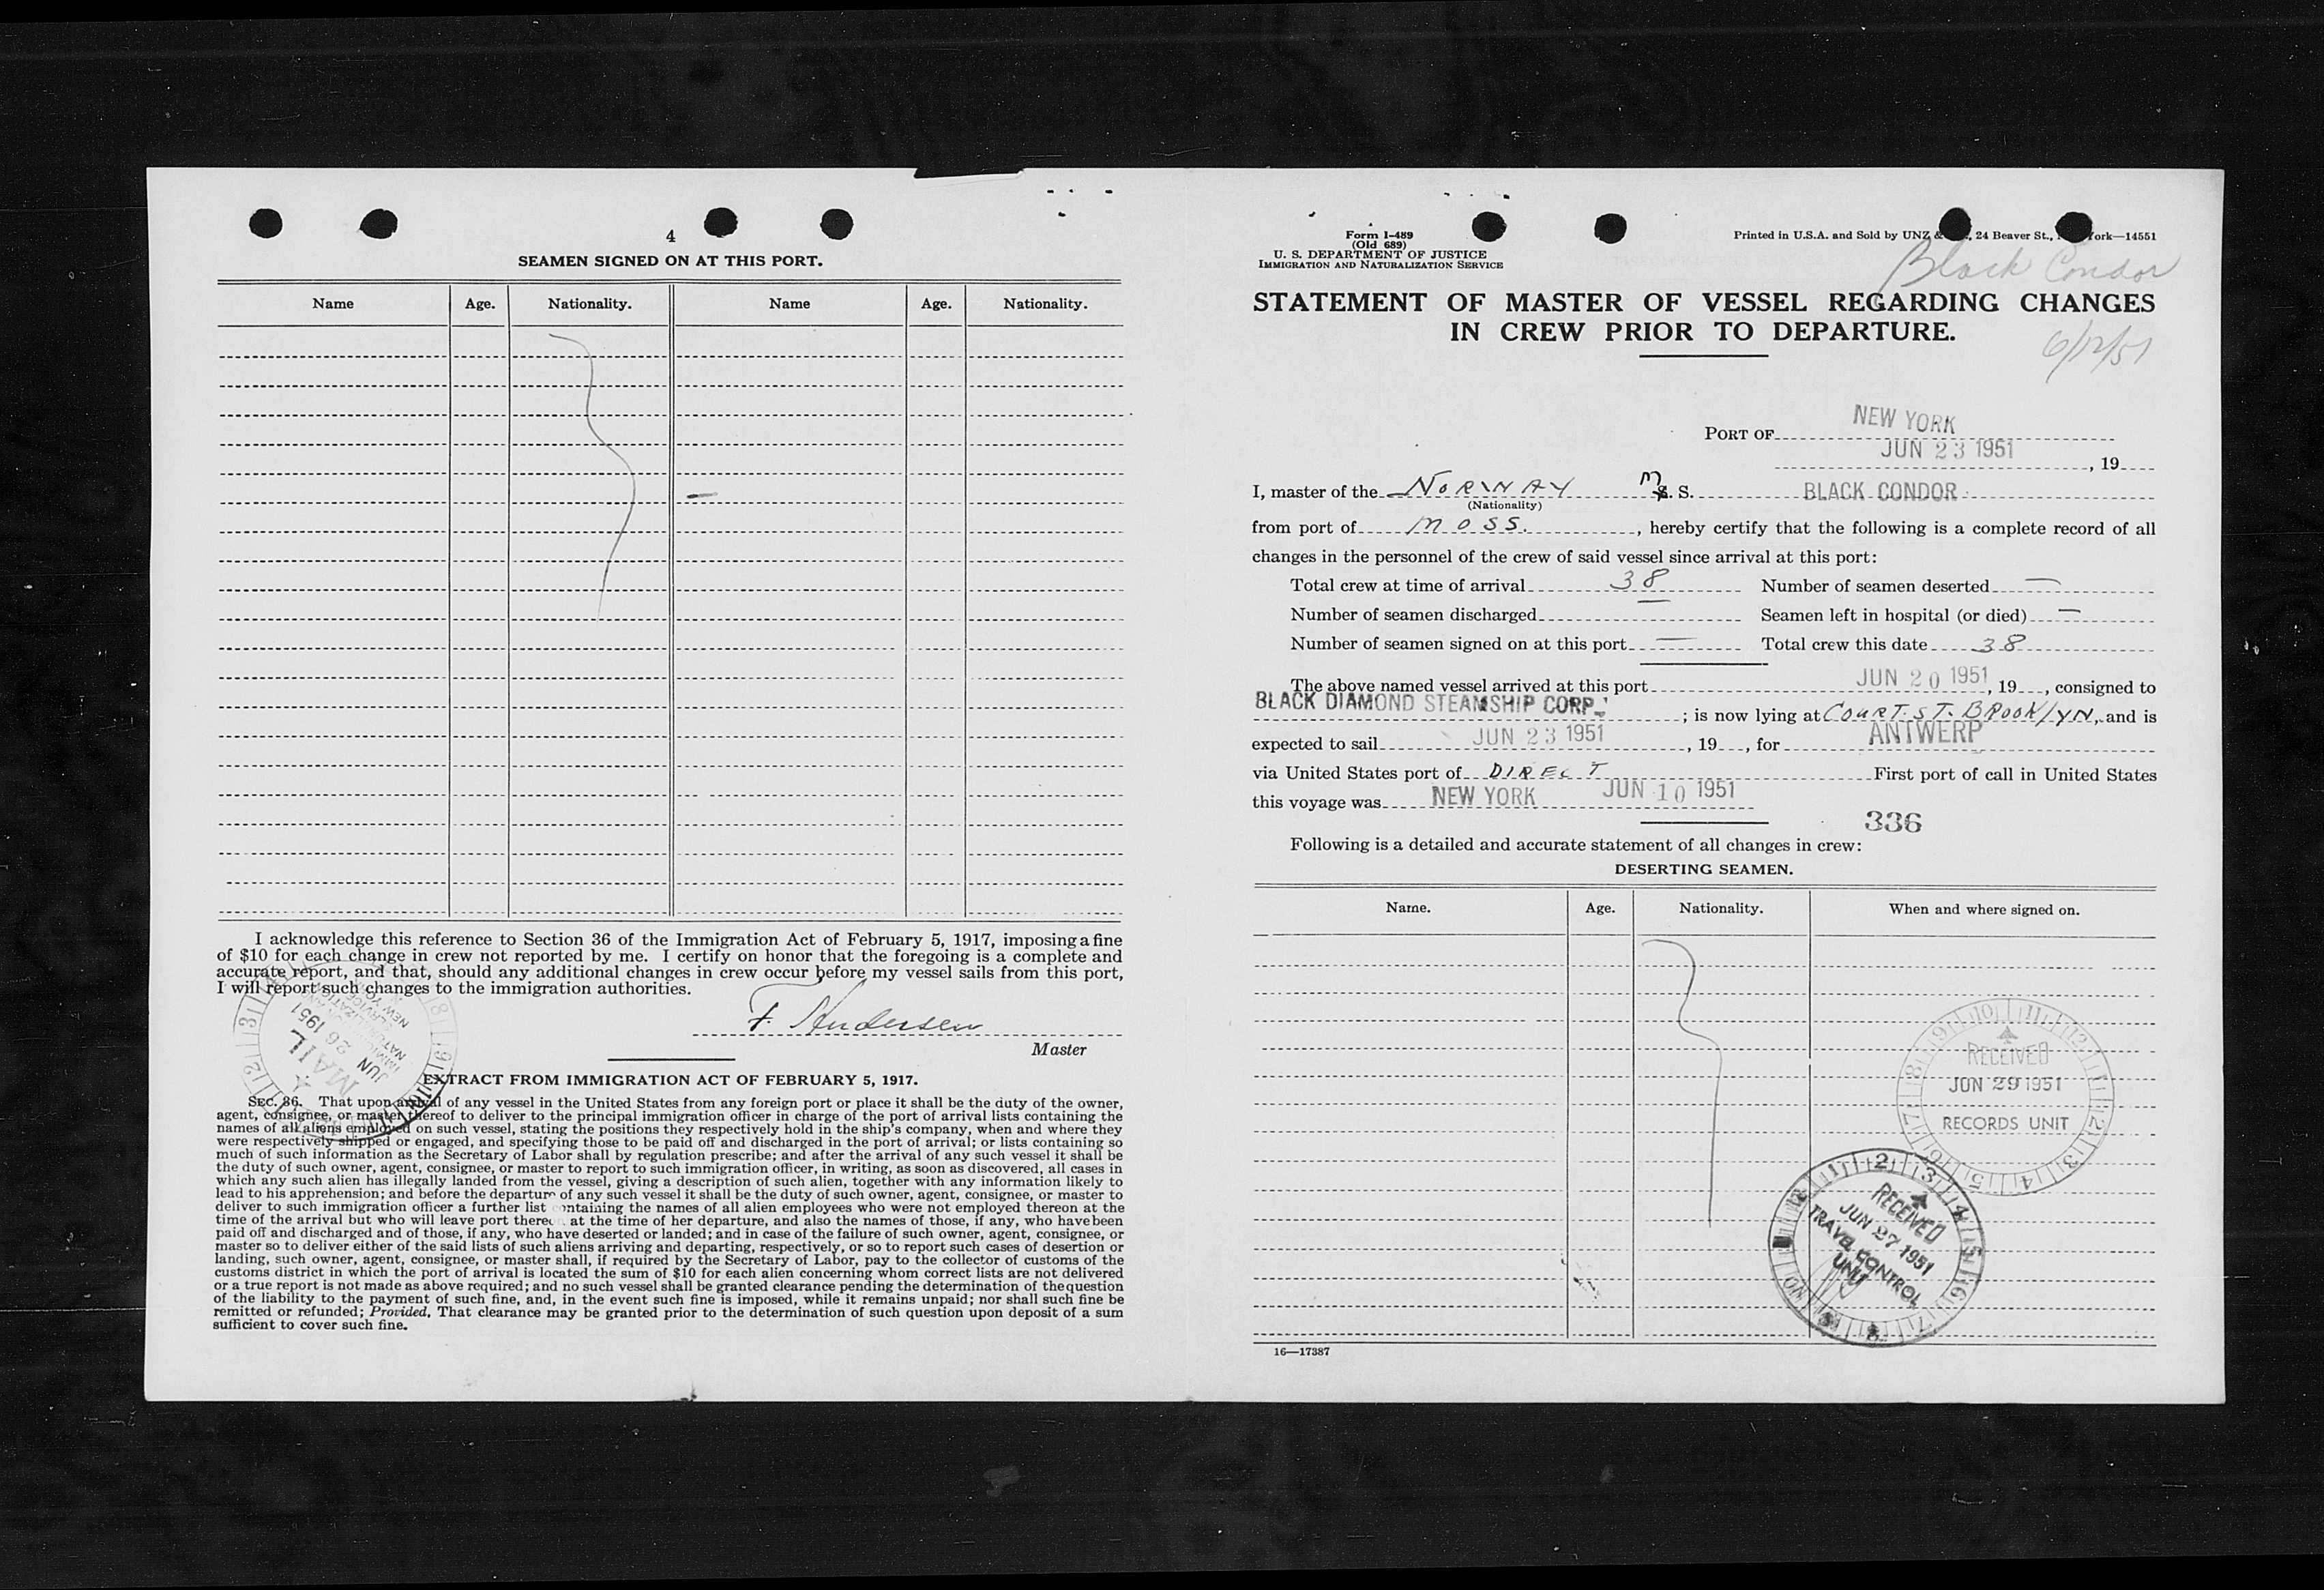 4
SEAMEN SIGNED ON AT THIS PORT.
Name Age. Nationality. Name Age. Nationality.
I acknowledge this reference to Section 36 of the Immigration Act of February 5, 1917, imposing a fine
of $10 for each change in crew not reported by me. I certify on honor that the foregoing is a complete and
accurate report, and that, should any additional changes in crew occur before my vessel sails from this port,
I will report such changes to the immigration authorities.
F. Andersen
Master
MAIL
JUN 26 1951
EXTRACT FROM IMMIGRATION ACT OF FEBRUARY 5, 1917.
SEC. 36. That upon arrival of any vessel in the United States from any foreign port or place it shall be the duty of the owner,
agent, consignee, or master thereof to deliver to the principal immigration officer in charge of the port of arrival lists containing the
names of all aliens employed on such vessel, stating the positions they respectively hold in the ship's company, when and where they
were respectively shipped or engaged, and specifying those to be paid off and discharged in the port of arrival; or lists containing so
much of such information as the Secretary of Labor shall by regulation prescribe; and after the arrival of any such vessel it shall be
the duty of such owner, agent, consignee, or master to report to such immigration officer, in writing, as soon as discovered, all cases in
which any such alien has illegally landed from the vessel, giving a description of such alien, together with any information likely to
lead to his apprehension; and before the departure of any such vessel it shall be the duty of such owner, agent, consignee, or master to
deliver to such immigration officer a further list containing the names of all alien employees who were not employed thereon at the
time of the arrival but who will leave port thereon at the time of her departure, and also the names of those, if any, who have been
paid off and discharged and of those, if any, who have deserted or landed; and in case of the failure of such owner, agent, consignee, or
master so to deliver either of the said lists of such aliens arriving and departing, respectively, or so to report such cases of desertion or
landing, such owner, agent, consignee, or master shall, if required by the Secretary of Labor, pay to the collector of customs of the
customs district in which the port of arrival is located the sum of $10 for each alien concerning whom correct lists are not delivered
or a true report is not made as above required; and no such vessel shall be granted clearance pending the determination of the question
of the liability to the payment of such fine, and, in the event such fine is imposed, while it remains unpaid; nor shall such fine be
remitted or refunded; Provided, That clearance may be granted prior to the determination of such question upon deposit of a sum
sufficient to cover such fine.
Form I-489
(Old 689)
U. S. DEPARTMENT OF JUSTICE
IMMIGRATION AND NATURALIZATION SERVICE
Printed in U.S.A. and Sold by UNZ & 24 Beaver St., York—14551
Black Condor
STATEMENT OF MASTER OF VESSEL REGARDING CHANGES
IN CREW PRIOR TO DEPARTURE.
6/12/51
PORT OF NEW YORK
JUN 23 1951, 19
I, master of the NORWAY M. S. BLACK CONDOR
(Nationality)
from port of MOSS., hereby certify that the following is a complete record of all
changes in the personnel of the crew of said vessel since arrival at this port:
Total crew at time of arrival 38 Number of seamen deserted —
Number of seamen discharged — Seamen left in hospital (or died) —
Number of seamen signed on at this port — Total crew this date 38
The above named vessel arrived at this port JUN 20 1951, 19, consigned to
BLACK DIAMOND STEAMSHIP CORP.; is now lying at COURT. ST. BROOKLYN, and is
expected to sail JUN 23 1951, 19, for ANTWERP
via United States port of DIRECT First port of call in United States
this voyage was NEW YORK JUN 10 1951
336
Following is a detailed and accurate statement of all changes in crew:
DESERTING SEAMEN.
Name. Age. Nationality. When and where signed on.
RECEIVED
JUN 29 1951
RECORDS UNIT
RECEIVED
JUN 27 1951
TRAVEL CONTROL
UNIT
16—17387